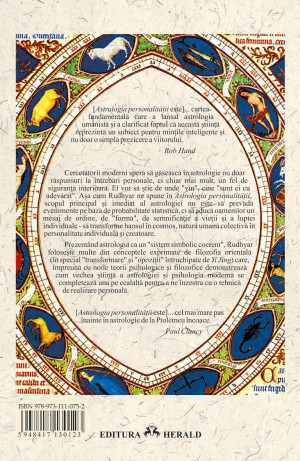 [Astrologia personalității este]... cartea
fundamentală care a lansat astrologia
umanistă și a clarificat faptul că această știință
reprezintă un subiect pentru mințile inteligente și
nu doar o simplă prezicere a viitorului.
Rob Hand
Cercetătorii moderni speră să găsească în astrologie nu doar
răspunsuri la întrebări personale, ci chiar mai mult, un fel de
siguranță interioară. Ei vor să știe de unde "vin", cine "sunt ei cu
adevărat". Așa cum Rudhyar ne spune în Astrologia personalității,
scopul principal și imediat al astrologiei nu este să prevadă
evenimente pe baza de probabilitate statistică, ci să aducă oamenilor un
mesaj de ordine, de "formă", de semnificație a vieții și a luptei
individuale - să transforme haosul în cosmos, natura umană colectivă în
personalitate individuală și creatoare.
Prezentând astrologia ca un "sistem simbolic coerent", Rudhyar
folosește multe din conceptele exprimate de filozofia orientală
(în special "transformare" și "opoziții" întruchipate de Yi Jing) care,
împreună cu noile teorii psihologice și filozofice demonstrează
cum vechea știință a astrologiei și psihologia modernă se
completează una pe cealaltă pentru a ne înzestra cu o tehnică
de realizare personală.
[Astrologia personalității este]...cel mai mare pas
înainte în astrologie de la Ptolemeu încoace.
Paul Clancy
ISBN 978-973-111-075-2
5948417130123
EDITURA HERALD